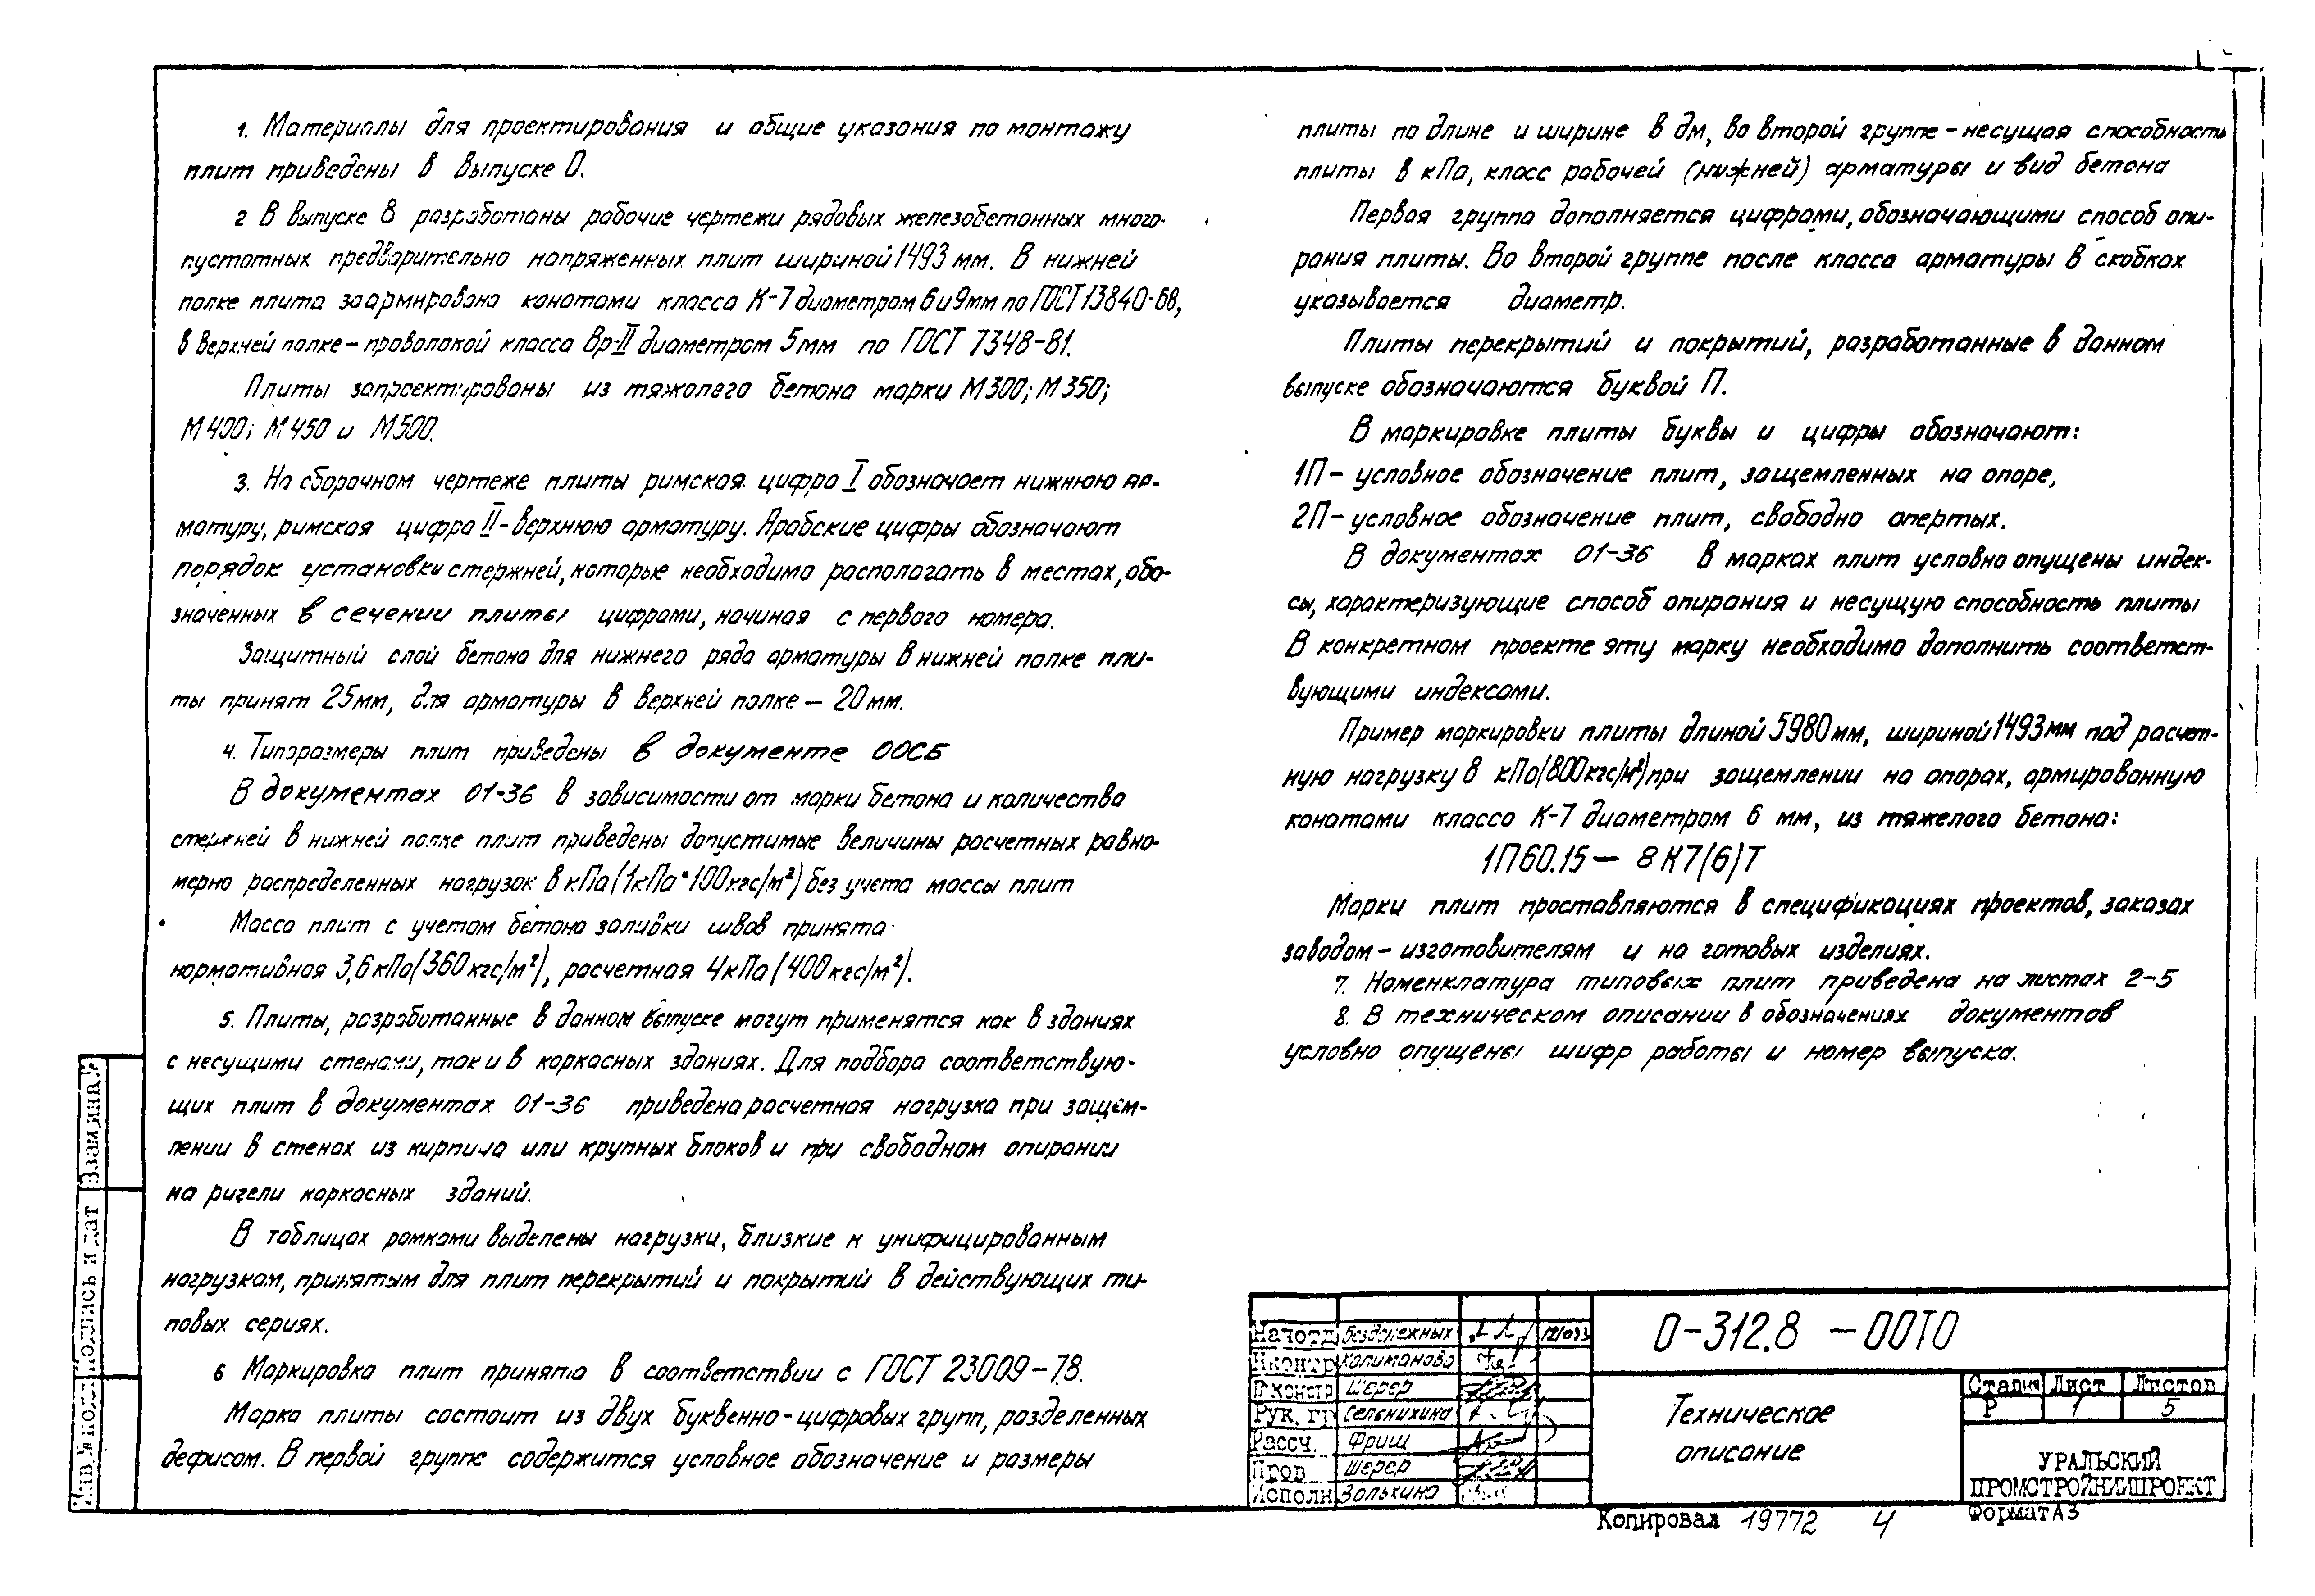 1. Материалы для проектирования и общие указания по монтажу
плит приведены в выпуске 0.
2 В выпуске 8 разработаны рабочие чертежи рядовых железобетонных много-
пустотных предварительно напряженных плит шириной 1493 мм. В нижней
полке плита заармирована канатами класса К-7 диаметром 6 и 9мм по ГОСТ 13840-68,
в верхней полке – проволокой класса Вр-II диаметром 5мм по ГОСТ 7348-81.
Плиты запроектированы из тяжолого бетона марки М300; М350;
М400; М450 и М500.
3. На сборочном чертеже плиты римская цифра I обозначает нижнюю ар-
матуру, римская цифра II - верхнюю арматуру. Арабские цифры обозначают
порядок установки стержней, которые необходимо располагать в местах, обо-
значенных в сечении плиты цифрами, начиная с первого номера.
Защитный слой бетона для нижнего ряда арматуры в нижней полке пли-
ты принят 25мм, для арматуры в верхней полке – 20мм.
4. Типоразмеры плит приведены в документе 00СБ
В документах 01-36 в зависимости от марки бетона и количества
стержней в нижней полке плит приведены допустимые величины расчетных равно-
мерно распределенных нагрузок в кПа (1кПа=100кгс/м²) без учета массы плит
Масса плит с учетом бетона заливки швов принята
нормативная 3,6кПа (360кгс/м²), расчетная 4кПа (400кгс/м²).
5. Плиты, разработанные в данном выпуске могут применятся как в зданиях
с несущими стенами, так и в каркасных зданиях. Для подбора соответствую-
щих плит в документах 01-36 приведена расчетная нагрузка при защем-
лении в стенах из кирпича или крупных блоков и при свободном опирании
на ригели каркасных зданий.
В таблицах рамками выделены нагрузки, близкие к унифицированным
нагрузкам, принятым для плит перекрытий и покрытий в действующих ти-
повых сериях.
6 Маркировка плит принята в соответствии с ГОСТ 23009-78.
Марка плиты состоит из двух буквенно-цифровых групп, разделенных
дефисом. В первой группе содержится условное обозначение и размеры
плиты по длине и ширине в дм, во второй группе – несущая способность
плиты в кПа, класс рабочей (нижней) арматуры и вид бетона
Первая группа дополняется цифрами, обозначающими способ опи-
рания плиты. Во второй группе после класса арматуры в скобках
указывается диаметр.
Плиты перекрытий и покрытий, разработанные в данном
выпуске обозначаются буквой П.
В маркировке плиты буквы и цифры обозначают:
1П – условное обозначение плит, защемленных на опоре,
2П – условное обозначение плит, свободно опертых.
В документах 01-36 в марках плит условно опущены индек-
сы, характеризующие способ опирания и несущую способность плиты
В конкретном проекте эту марку необходимо дополнить соответст-
вующими индексами.
Пример маркировки плиты длиной 5980мм, шириной 1493мм под расчет-
ную нагрузку 8 кПа (800кгс/м²) при защемлении на опорах, армированную
канатами класса К-7 диаметром 6 мм, из тяжелого бетона:
1П60.15 – 8К7(6)Т
Марки плит проставляются в спецификациях проектов, заказах
заводам – изготовителям и на готовых изделиях.
7. Номенклатура типовых плит приведена на листах 2-5
8. В техническом описании в обозначениях документов
условно опущены шифр работы и номер выпуска.
Взам.инв.№
Подпись и дат
Инв.№ подл
Нач отд Безденежных
Н.контр Калиманова
Гл.констр Шерер
Рук. гр Сельнихина
Рассч. Фриш
Пров Шерер
Исполн Волхина
0-312.8 – 00ТО
Техническое
описание
Стадия Лист Листов
Р 1 5
УРАЛЬСКИЙ
ПРОМСТРОЙНИИПРОЕКТ
Копировал 19772 4 Формат А3